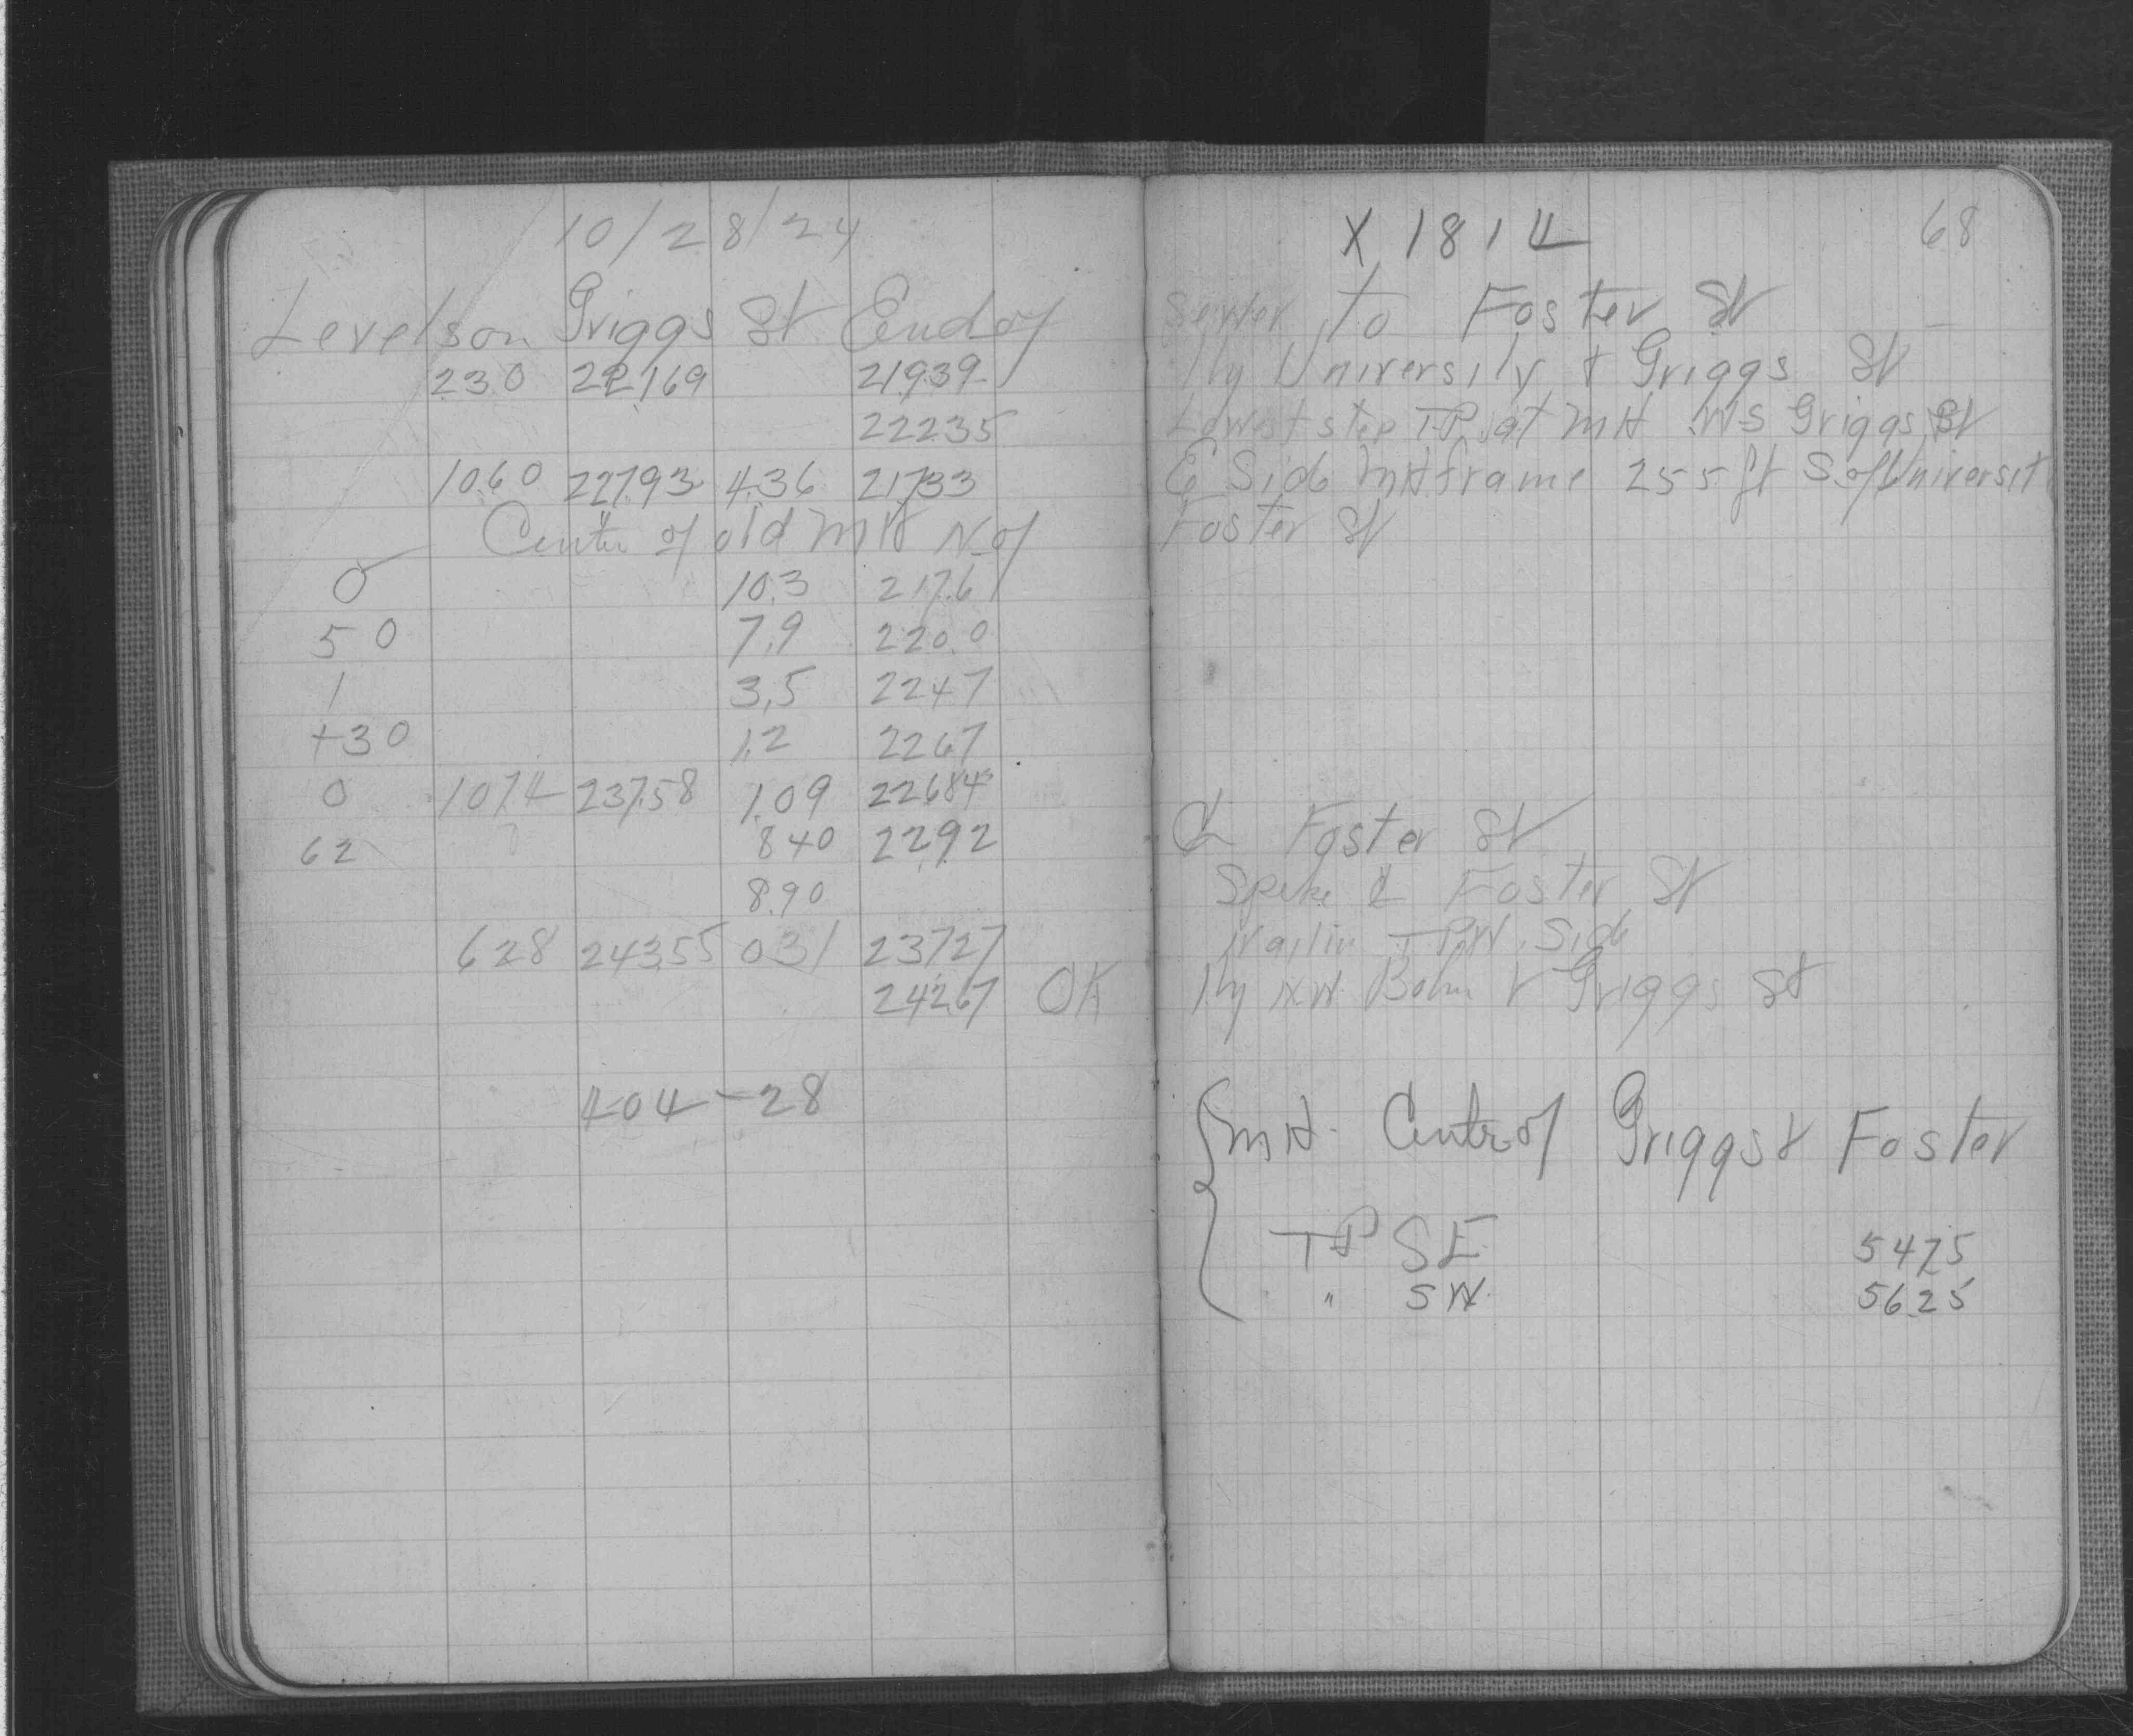 10/28/24
Levels on Griggs St End of
230 22169 21939
22235
1060 22793 436 21733
Center of old MH N of
0 10.3 217.6
50 7.9 220.0
1 3.5 2247
+30 1.2 2267
0 1074 23758 1.09 22684
62 840 2292
8.90
628 24355 031 23727
24267 OK
404-28
X 1814 68
Sewer to Foster St
Hy University & Griggs St
Lowest step TP at MH WS Griggs St
E Side MH frame 255 ft S of Universit
Foster St
℄ Foster St
Spike ℄ Foster St
Nail in TP W. Side
Hy N.W. & Griggs St
MH Center of Griggs & Foster
TP SE 5475
" SW 5625